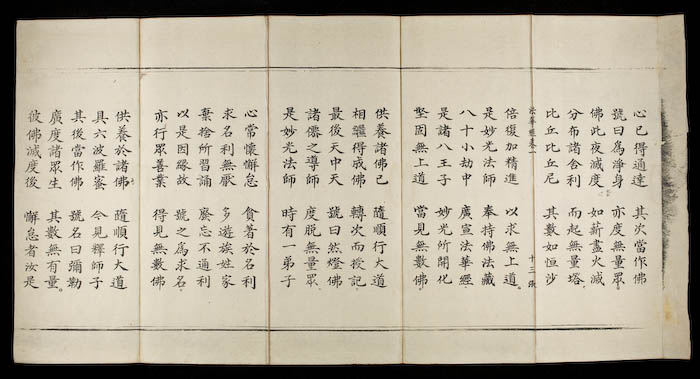 心已得通達　其次當作佛
號曰為淨身　亦度無量眾
佛此夜滅度　如薪盡火滅
分布諸舍利　而起無量塔
比丘比丘尼　其數如恒沙
法華經卷一　十三張
倍復加精進　以求無上道
是妙光法師　奉持佛法藏
八十小劫中　廣宣法華經
是諸八王子　妙光所開化
堅固無上道　當見無數佛
供養諸佛已　隨順行大道
相繼得成佛　轉次而授記
最後天中天　號曰然燈佛
諸僊之導師　度脫無量眾
是妙光法師　時有一弟子
心常懷懈怠　貪著於名利
求名利無厭　多遊族姓家
棄捨所習誦　廢忘不通利
以是因緣故　號之為求名
亦行眾善業　得見無數佛
供養於諸佛　隨順行大道
具六波羅蜜　今見釋師子
其後當作佛　號名曰彌勒
廣度諸眾生　其數無有量
彼佛滅度後　懈怠者汝是